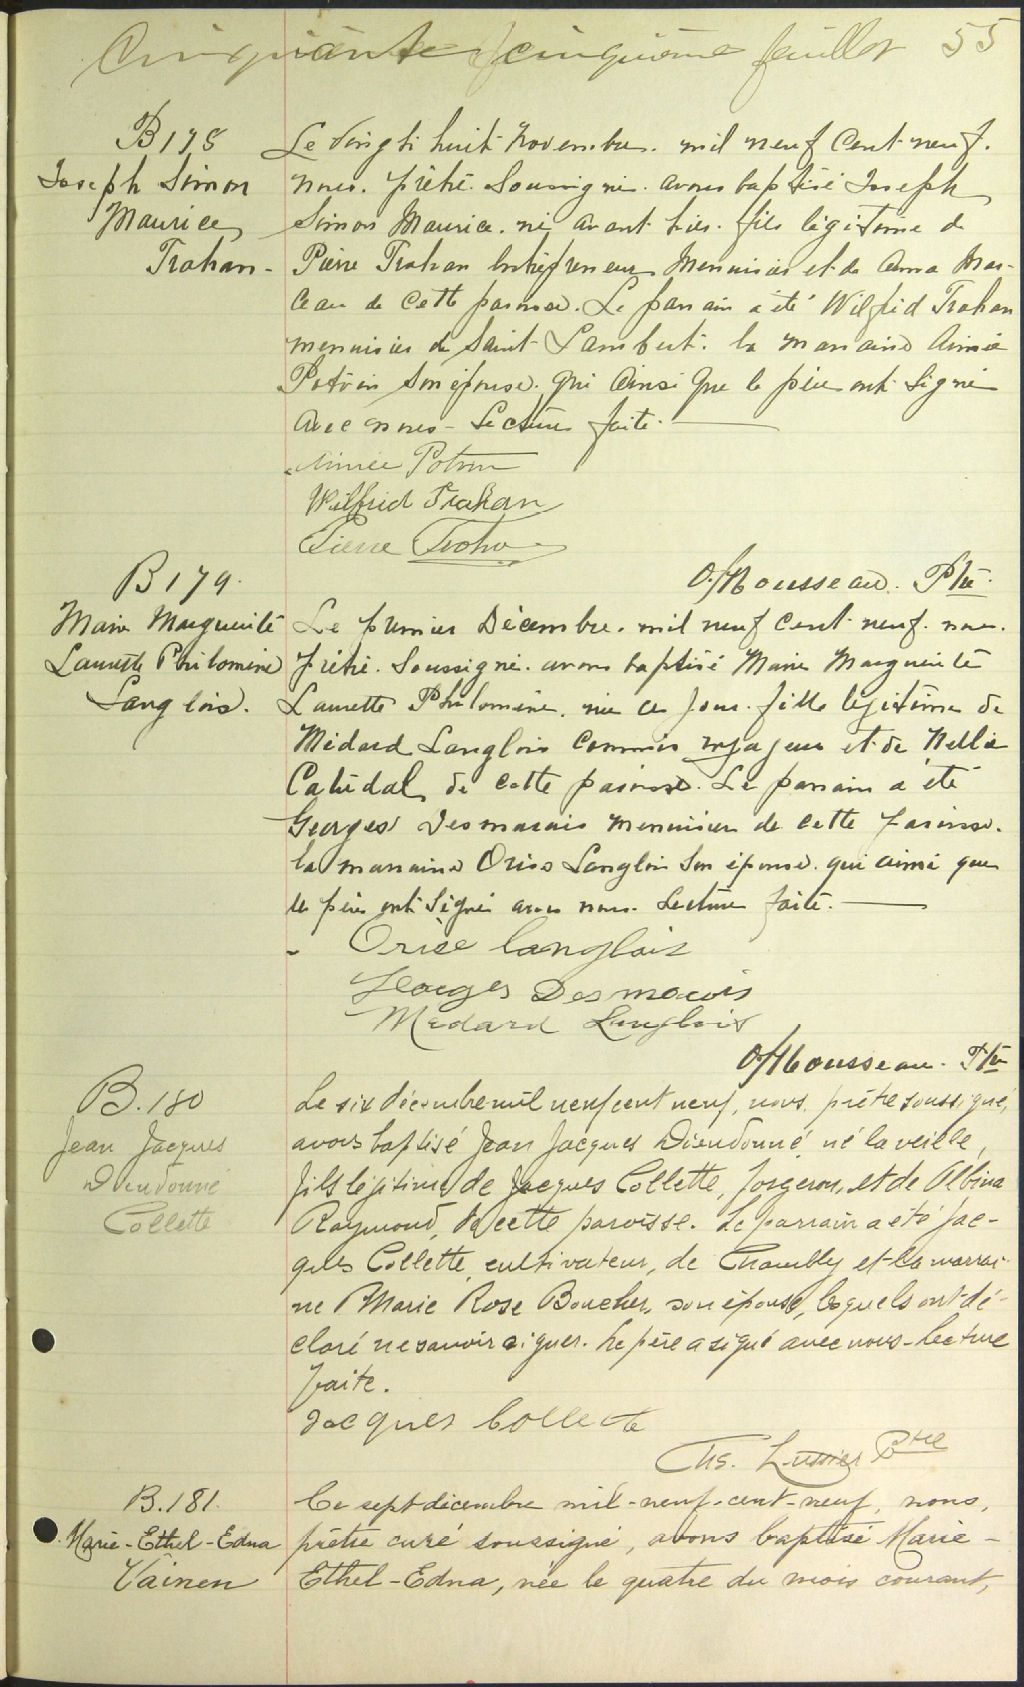 Cinquante cinquième feuillet 55
B178
Joseph Simon
Maurice
Trahan-
Le vingt huit Novembre. mil neuf cent neuf.
nous. prêtre. Soussigné. avons baptisé Joseph
Simon Maurice. né avant hier. fils légitime de
Pierre Trahan Entrepreneur Menuisier et de Anna Mar-
ceau de cette paroisse. Le parrain a été Wilfrid Trahan
menuisier de Saint Lambert. la marraine Aimée
Potvin son épouse. qui ainsi que le père ont signé
avec nous - Lecture faite.
Aimée Potvin
Wilfrid Trahan
Pierre Trahan
O. Mousseau. Ptre
B179.
Marie Marguerite
Laurette Philomène
Langlois.
Le premier Décembre. mil neuf cent neuf. nous.
prêtre. Soussigné. avons baptisé Marie Marguerite
Laurette Philomène. née ce jour. fille légitime de
Médard Langlois Commis voyageur et de Nellie
de cette paroisse. Le parrain a été
Georges Desmarais menuisier de cette paroisse.
la marraine Orise Langlois son épouse. qui ainsi que
le père ont signé avec nous. Lecture faite.
Orise Langlois
Georges Desmarais
Médard Langlois
O. Mousseau. Ptre
B.180
Jean Jacques
Dieudonné
Collette
Le six décembre mil neuf cent neuf, nous, prêtre soussigné,
avons baptisé Jean Jacques Dieudonné, né la veille,
fils légitime de Jacques Collette, forgeron, et de Albina
Raymond, de cette paroisse. Le parrain a été Jac-
ques Collette, cultivateur, de Chambly et la marrai-
ne Marie Rose Boucher, son épouse, lesquels ont dé-
claré ne savoir signer. Le père a signé avec nous - lecture
faite.
Jacques Collette
Chs. Lussier Ptre
B.181.
Marie-Ethel-Edna
Vainen
Ce sept décembre mil-neuf-cent-neuf, nous,
prêtre curé soussigné, avons baptisé Marie-
Ethel-Edna, née le quatre du mois courant,